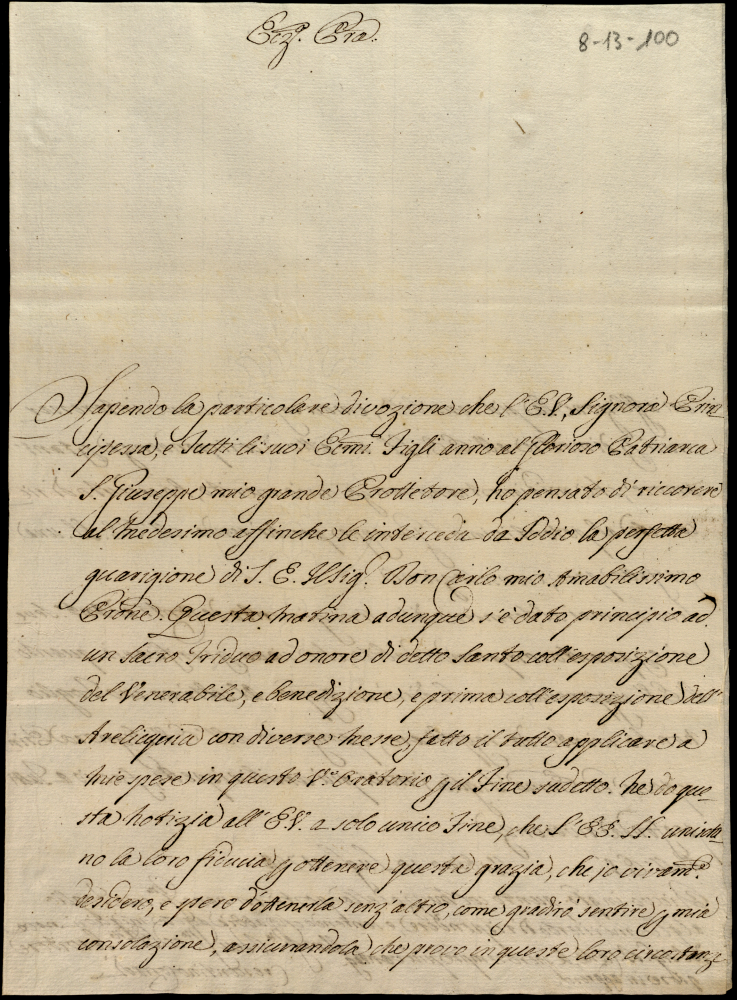 Ecz.ª Pra.
8-13-100
Sapendo la particolare divozione che l'E.V., Signora Prin=
cipessa, e Tutti li suoi Ecmi. Figli anno al Glorioso Patriarca
S. Giuseppe mio grande Prottetore, ho pensato di riccorere
al Medesimo affinche le interceda da Iddio la perfetta
guarigione di S. E. Il Sig.r Don Carlo mio Amabilissimo
Prone. Questa matina adunque s'è dato principio ad
un Sacro Triduo ad onore di detto Santo coll'esposizione
del Venerabile, e benedizione, e prima coll'esposizione dell'
Areliquia con diverse Messe, fatto il tutto applicare a
mie spese in questo V.º Oratorio p il Fine sudetto. Ne do que-
sta Notizia all'E.V. a solo unico Fine, che l'EE. LL. unisca-
no la loro fiducia p ottenere questa grazia, che jo vivam.e
desidero, e spero d'ottenerla senz'altro, come gradirò sentire p mia
consolazione, assicurandola che provo in queste loro circostanz